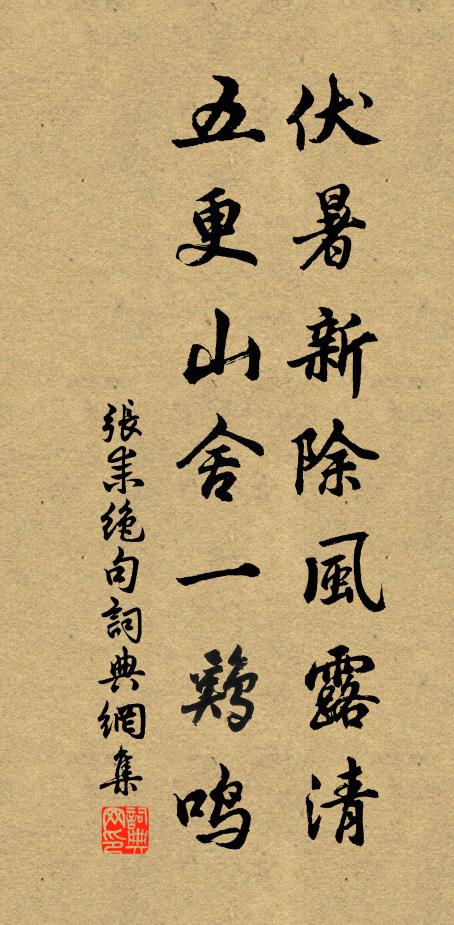 伏暑新除風露清
五更山舍一鷄鳴
張耒絶句詞典網集
詞典
网印